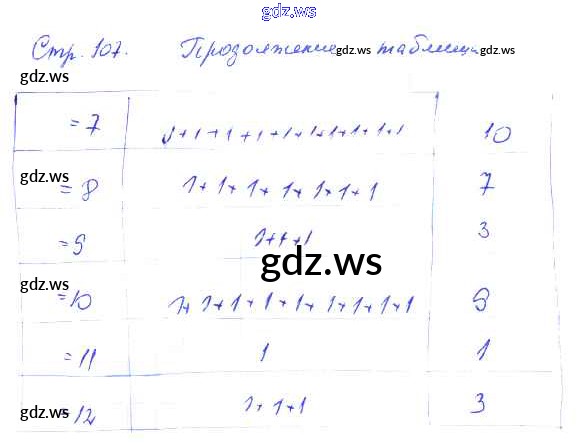 gdz.ws
Стр. 107. Продолжение gdz.ws таблицы gdz.ws
gdz.ws
= 7 1+1+1+1+1+1+1+1+1+1 10
gdz.ws
= 8 1+1+1+1+1+1+1 7
= 9 1+1+1 3
gdz.ws
gdz.ws
= 10 1+1+1+1+1+1+1+1+1 9
= 11 1 1
gdz.ws
= 12 1+1+1 3